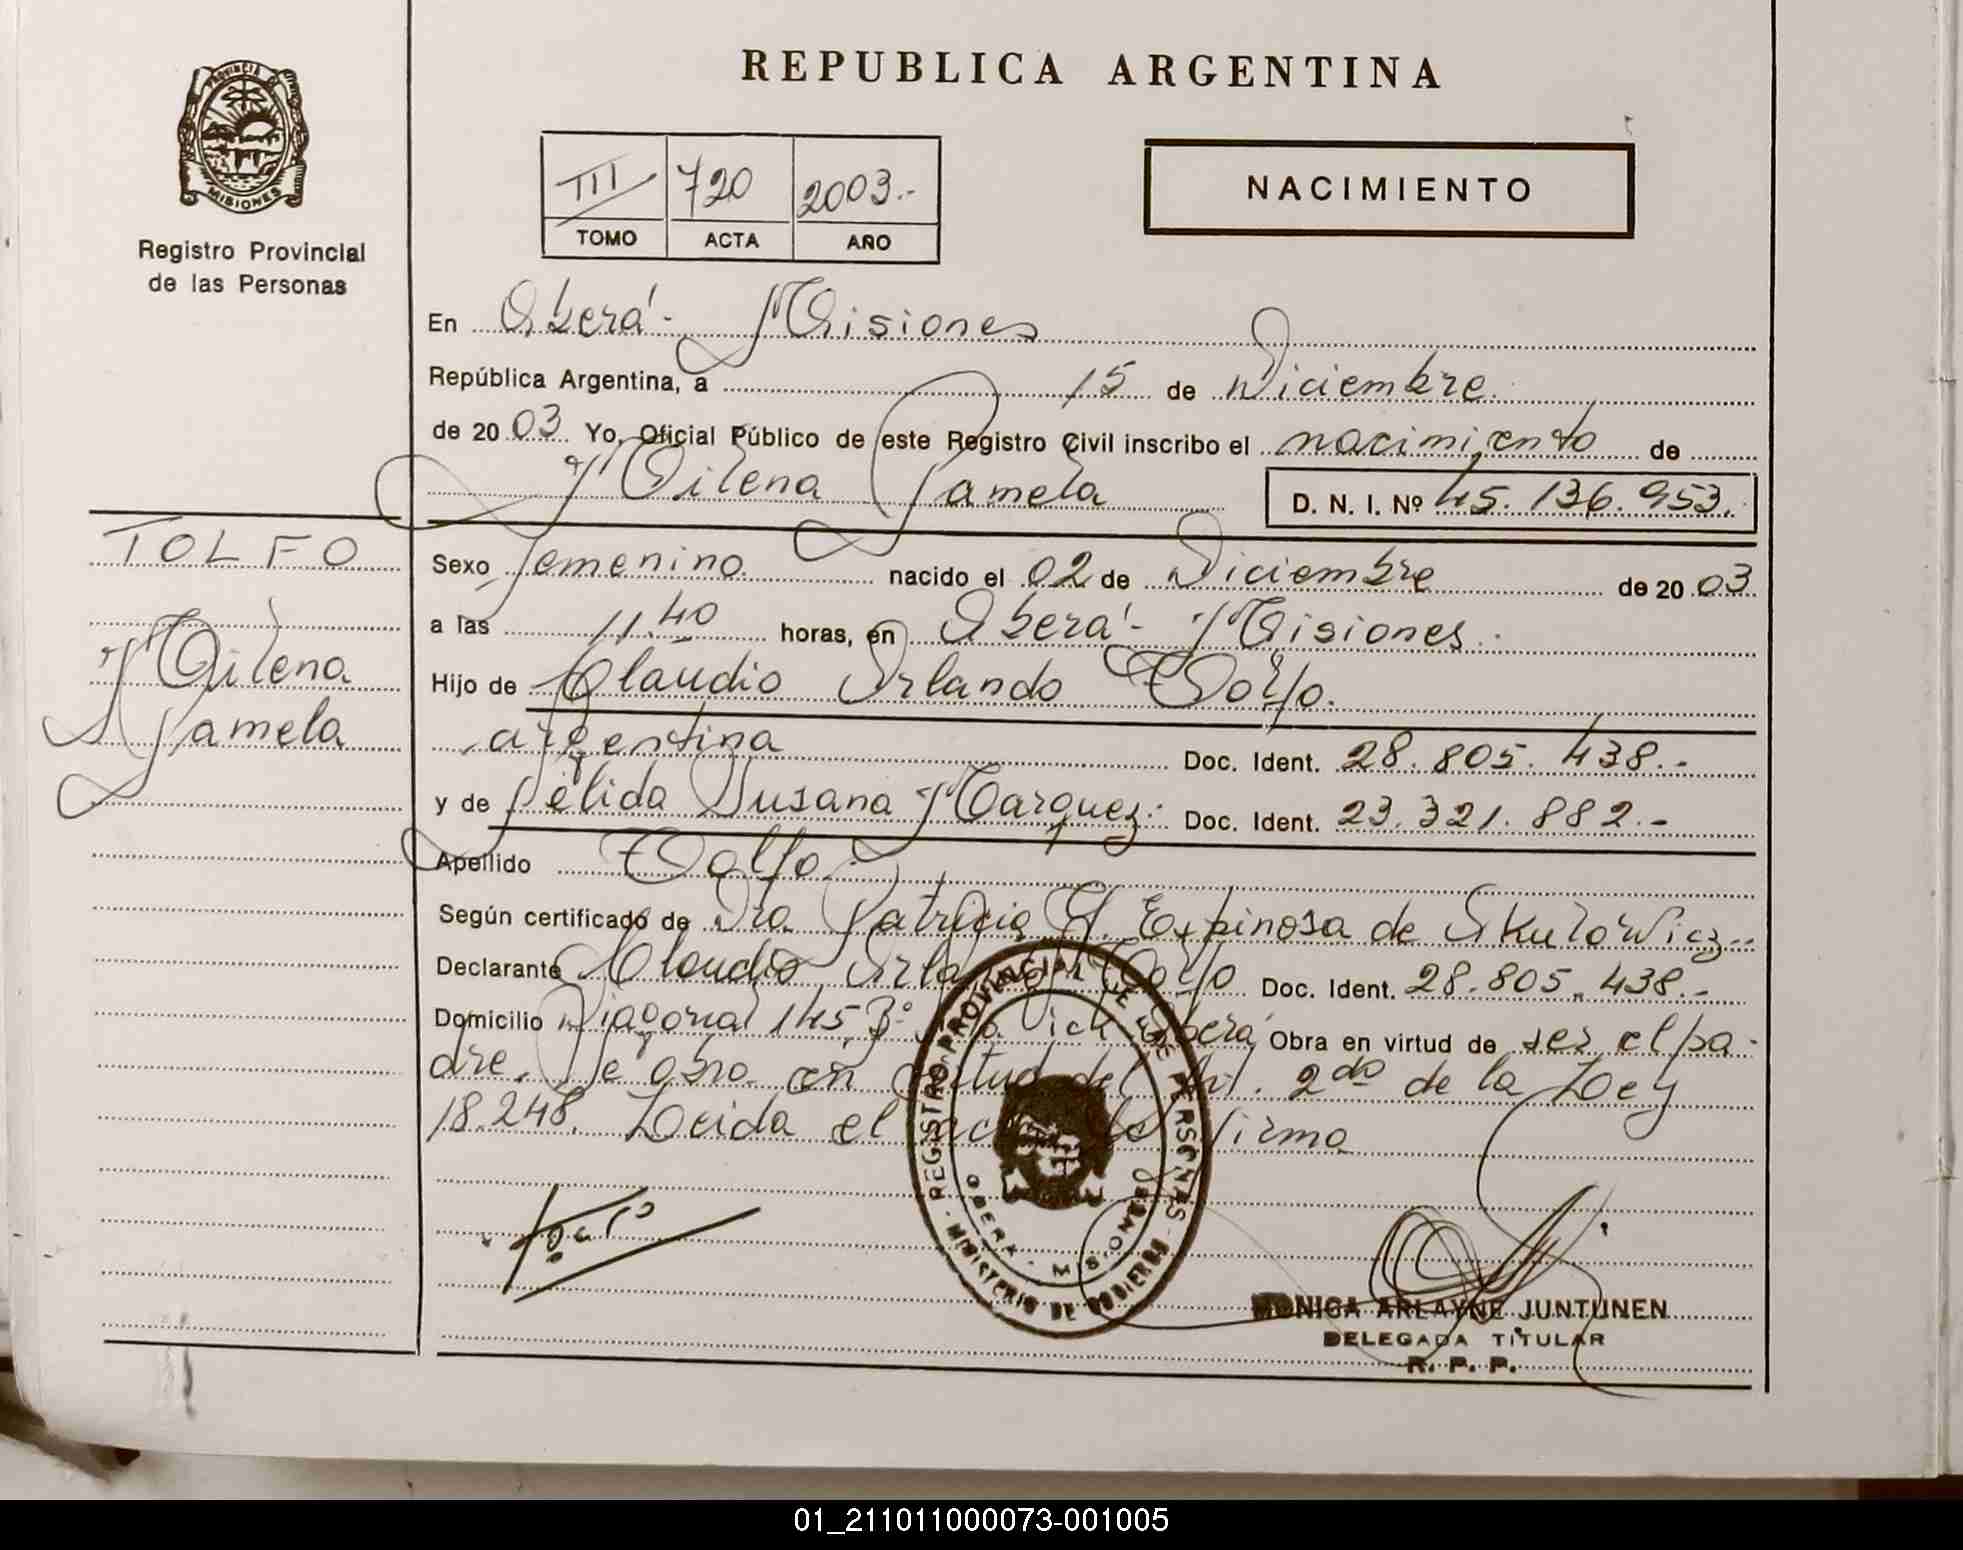 REPUBLICA ARGENTINA
PROVINCIA
MISIONES
Registro Provincial
de las Personas
III 720 2003.-
TOMO ACTA AÑO
NACIMIENTO
En Oberá - Misiones
República Argentina, a 15 de Diciembre
de 2003 Yo, Oficial Público de este Registro Civil inscribo el nacimiento de
Milena Pamela D. N. I. Nº 45.136.953.
TOLFO
Milena
Pamela
Sexo femenino nacido el 02 de Diciembre de 2003
a las 11.40 horas, en Oberá - Misiones.
Hijo de Claudio Orlando Tolfo.
argentina Doc. Ident. 28.805.438.-
y de Nélida Susana Marquez. Doc. Ident. 23.321.882.-
Apellido Tolfo.
Según certificado de Dra. Patricia H. Espinosa de Skulowicz.-
Declarante Claudio Orlando Tolfo Doc. Ident. 28.805.438.-
Domicilio Diagonal 145, Bº Vick Oberá Obra en virtud de ser el pa-
dre. Se obra en virtud del Art. 2do de la Ley
18.248. Leida el acta la firma
REGISTRO PROVINCIAL DE LAS PERSONAS
OBERA - MISIONES
MINISTERIO DE GOBIERNO
MONICA ARLAYNE JUNTUNEN
DELEGADA TITULAR
R. P. P.
01_211011000073-001005